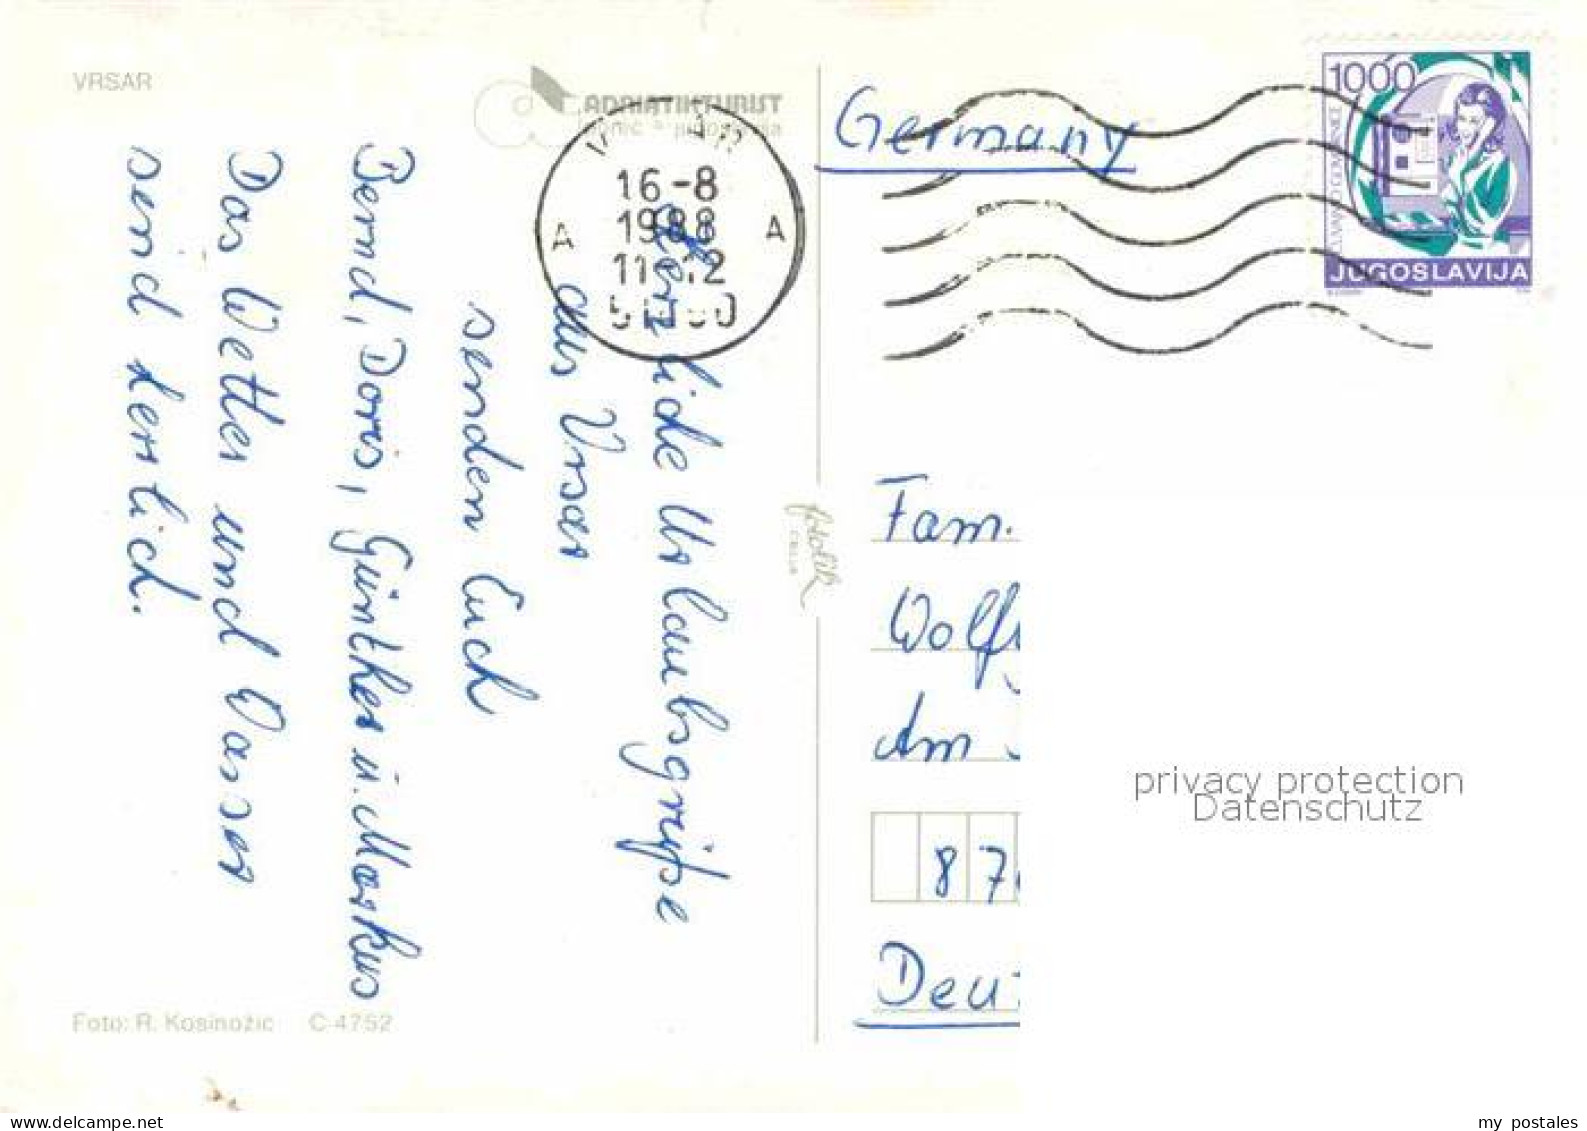 VRSAR
ADRIATIKTURIST
Germany
16-8
1988
A A
1000
JUGOSLAVIJA
Herzliche Urlaubsgrüße
aus Vrsar
senden Euch
Bernd, Doris, Günther u. Markus
Das Wetter und Wasser
sind herrlich.
fotolik
Fam.
Wolf
Am
87
Deu
privacy protection
Datenschutz
Foto: R. Kosinožic C-4752
delcampe.net
my_postales